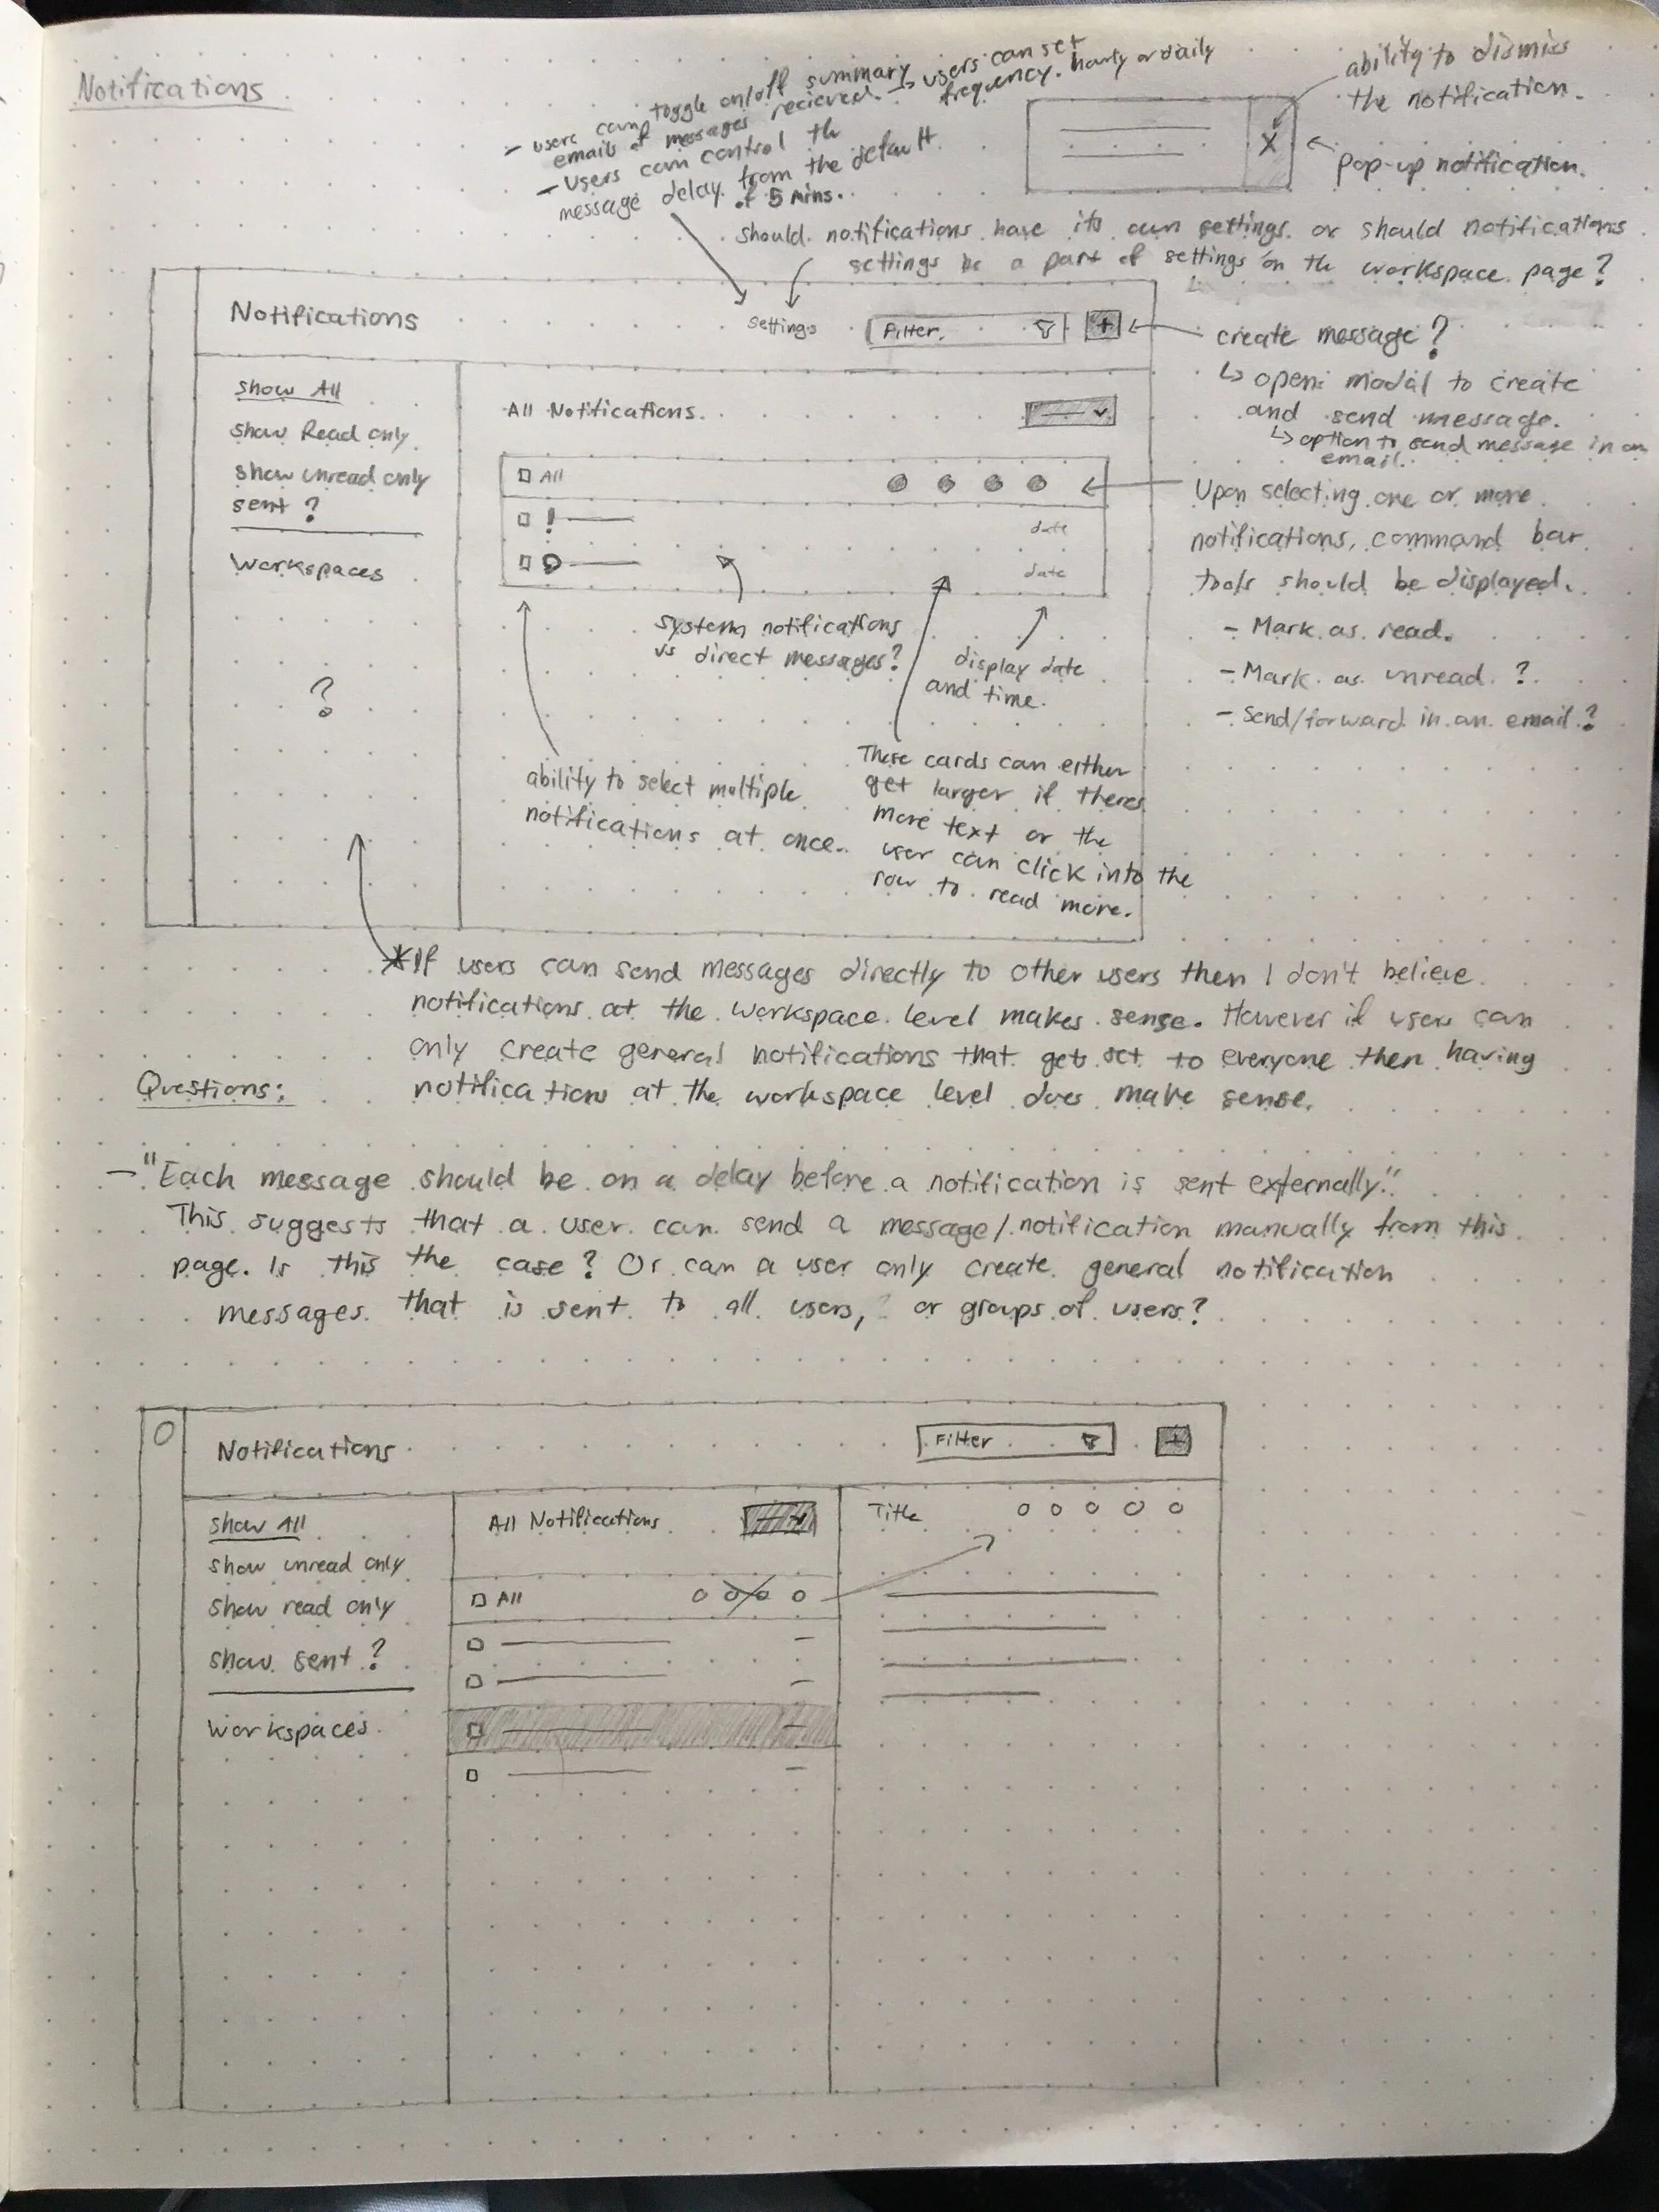 Notifications
- users can toggle on/off summary
emails of messages recieved. → users can set
frequency. hourly or daily
- Users can control the
message delay from the default
of 5 mins.
ability to dismiss
the notification.
X
pop-up notification.
should notifications have its own settings or should notifications
settings be a part of settings on the workspace page?
Notifications
settings
Filter
+
create message?
↳ opens modal to create
and send message.
↳ option to send message in an
email.
show All
show Read only
show unread only
sent ?
Workspaces
?
All Notifications
All
! date
date
Upon selecting one or more
notifications, command bar
tools should be displayed.
- Mark as read.
- Mark as unread ?
- Send/forward in an email ?
system notifications
vs direct messages?
display date
and time.
ability to select multiple
notifications at once.
These cards can either
get larger if theres
more text or the
user can click into the
row to read more.
*If users can send messages directly to other users then I don't believe
notifications at the workspace level makes sense. However if users can
only create general notifications that gets set to everyone then having
notifications at the workspace level does make sense.
Questions:
- "Each message should be on a delay before a notification is sent externally."
This suggests that a user can send a message/notification manually from this
page. Is this the case? Or can a user only create general notification
messages that is sent to all users, or groups of users?
Notifications
Filter
+
show All
show unread only
show read only
show sent ?
Workspaces
All Notifications
All
Title